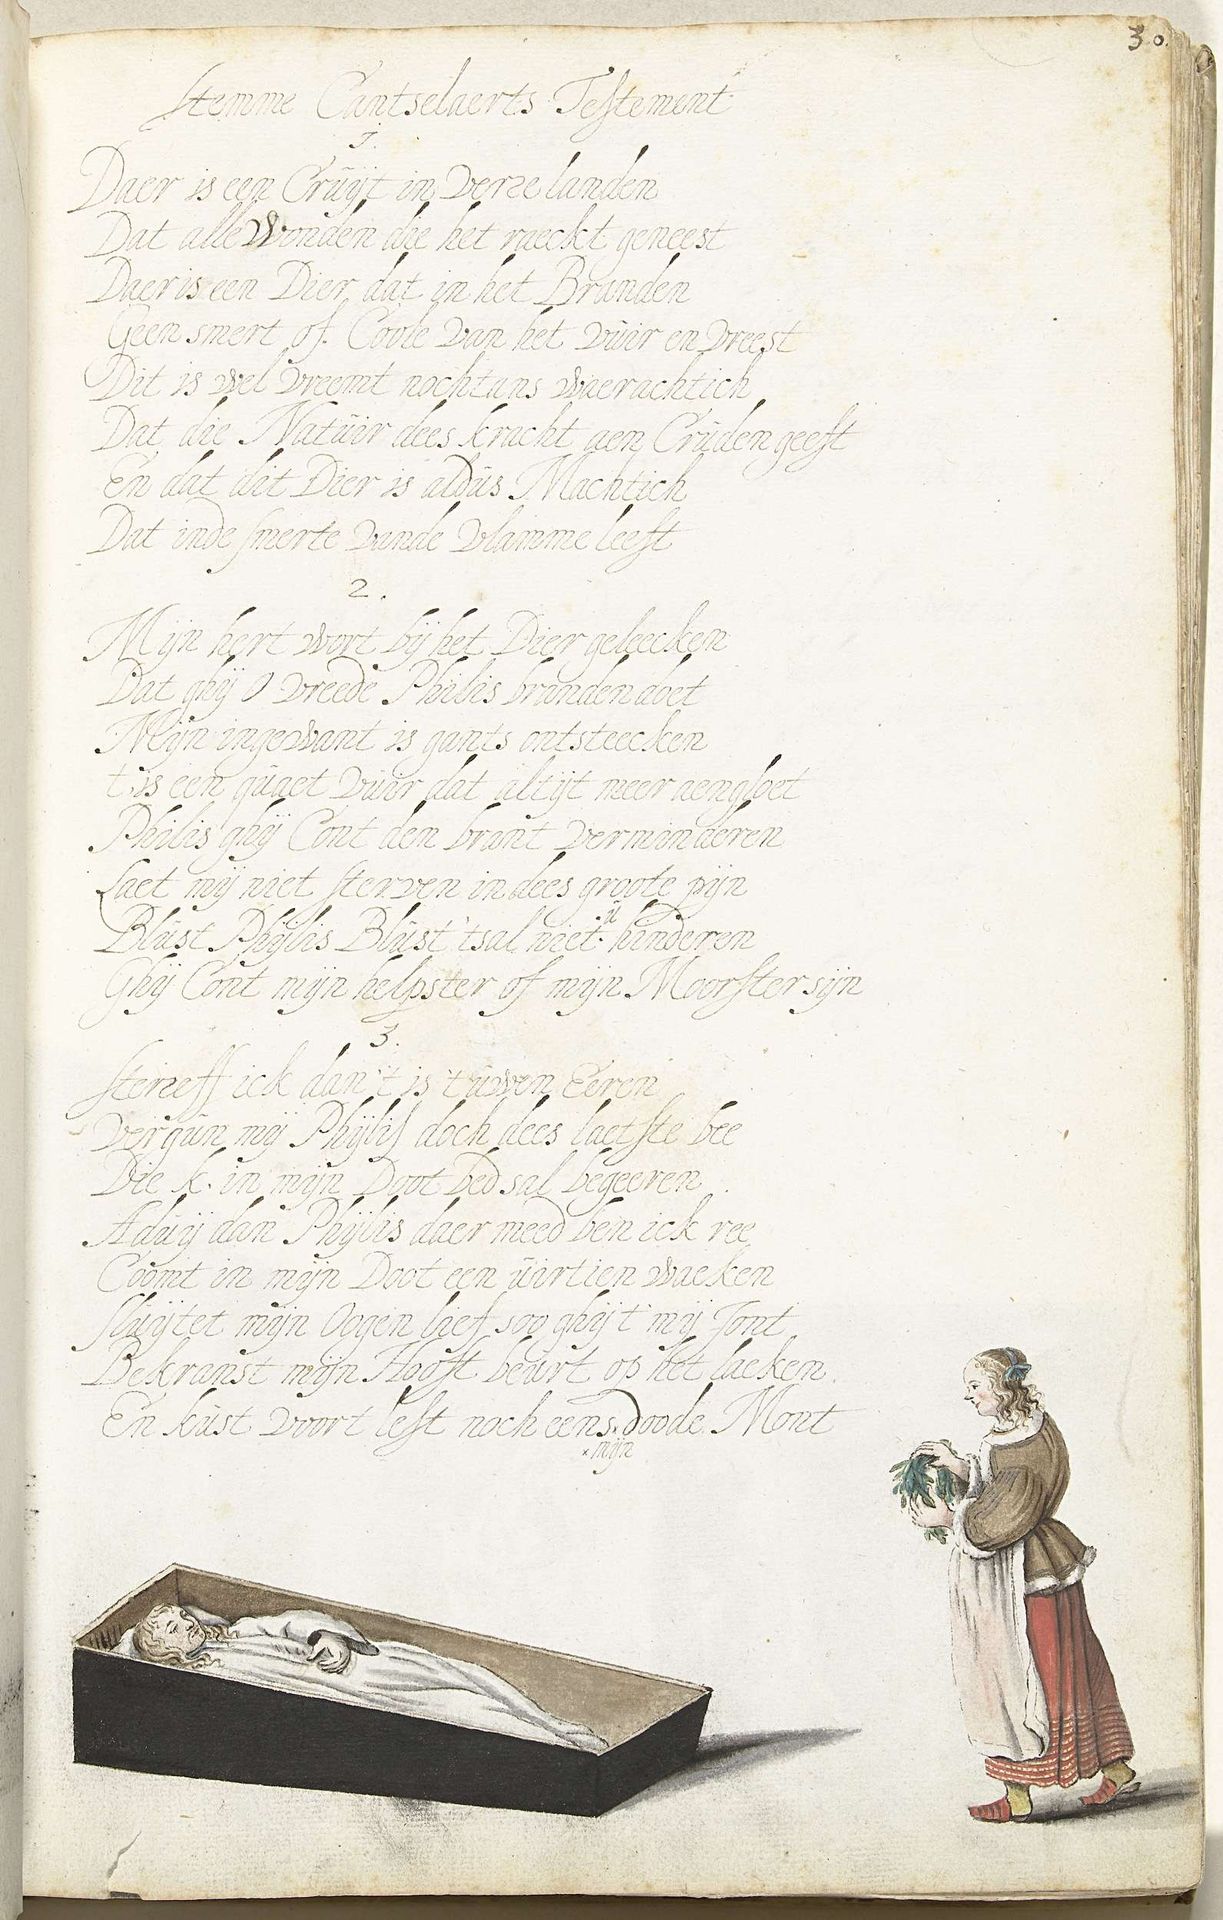 30.
Stemme Cantselaerts Testement
1.
Daer is een Cruÿt in verre landen
Dat alle Wonden die het raeckt geneest
Daer is een Dier dat in het Branden
Geen smert of Coole van het vuir en vreest
Dit is wel vreemt nochtans waerachtich
Dat die Natuir dees kracht aen Cruden geeft
En dat dit Dier is aldus Machtich
Dat inde smerte vande vlamme leeft
2.
Mijn hert wort bÿ het Dier geleecken
Dat ghÿ O vreede Philis branden doet
Mijn ingewant is gants ontsteecken
t is een quaet vuir dat altijt meer aengloet
Philis ghÿ Cont den brant verminderen
Laet mÿ niet sterven in dees groote pijn
Blust Phÿlis Blust 'tsal niet u hinderen
Ghÿ Cont mijn helpster of mijn Moorster sijn
3.
Sterreff ick dan 't is t' uwen Eeren
Vergun mÿ Phÿlis doch dees laetste bee
Die k. in mijn Doot bed sal begeeren
Aduÿ dan Phÿlis daer meed ben ick ree
Coomt in mijn Doot een uirtien waeken
Sluÿtet mijn Oogen lief soo ghÿ t' mÿ Jont
Bekranst mijn Hooft beurt op het laeken.
En kust voort lest noch eens × doode Mont
× mijn